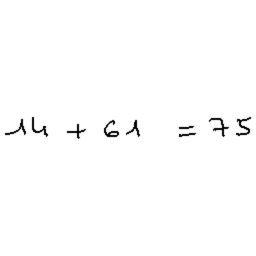 14 + 61 = 75